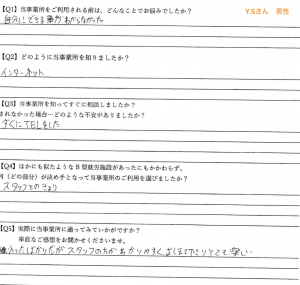 【Q1】当事業所をご利用される前は、どんなことでお悩みでしたか？
Y.Sさん 男性
自分にできる事がわからなかった
【Q2】どのように当事業所を知りましたか？
インターネット
【Q3】当事業所を知ってすぐに相談しましたか？
されなかった場合…どのような不安がありましたか？
すぐにTELをした
【Q4】ほかにも似たようなB型就労施設があったにもかかわらず、
何（どの部分）が決め手となって当事業所のご利用を選びましたか？
スタッフとのきょり
【Q5】実際に当事業所に通ってみていかがですか？
率直なご感想をお聞かせくださいませ。
入ったばかりだがスタッフの方がわかりやすく